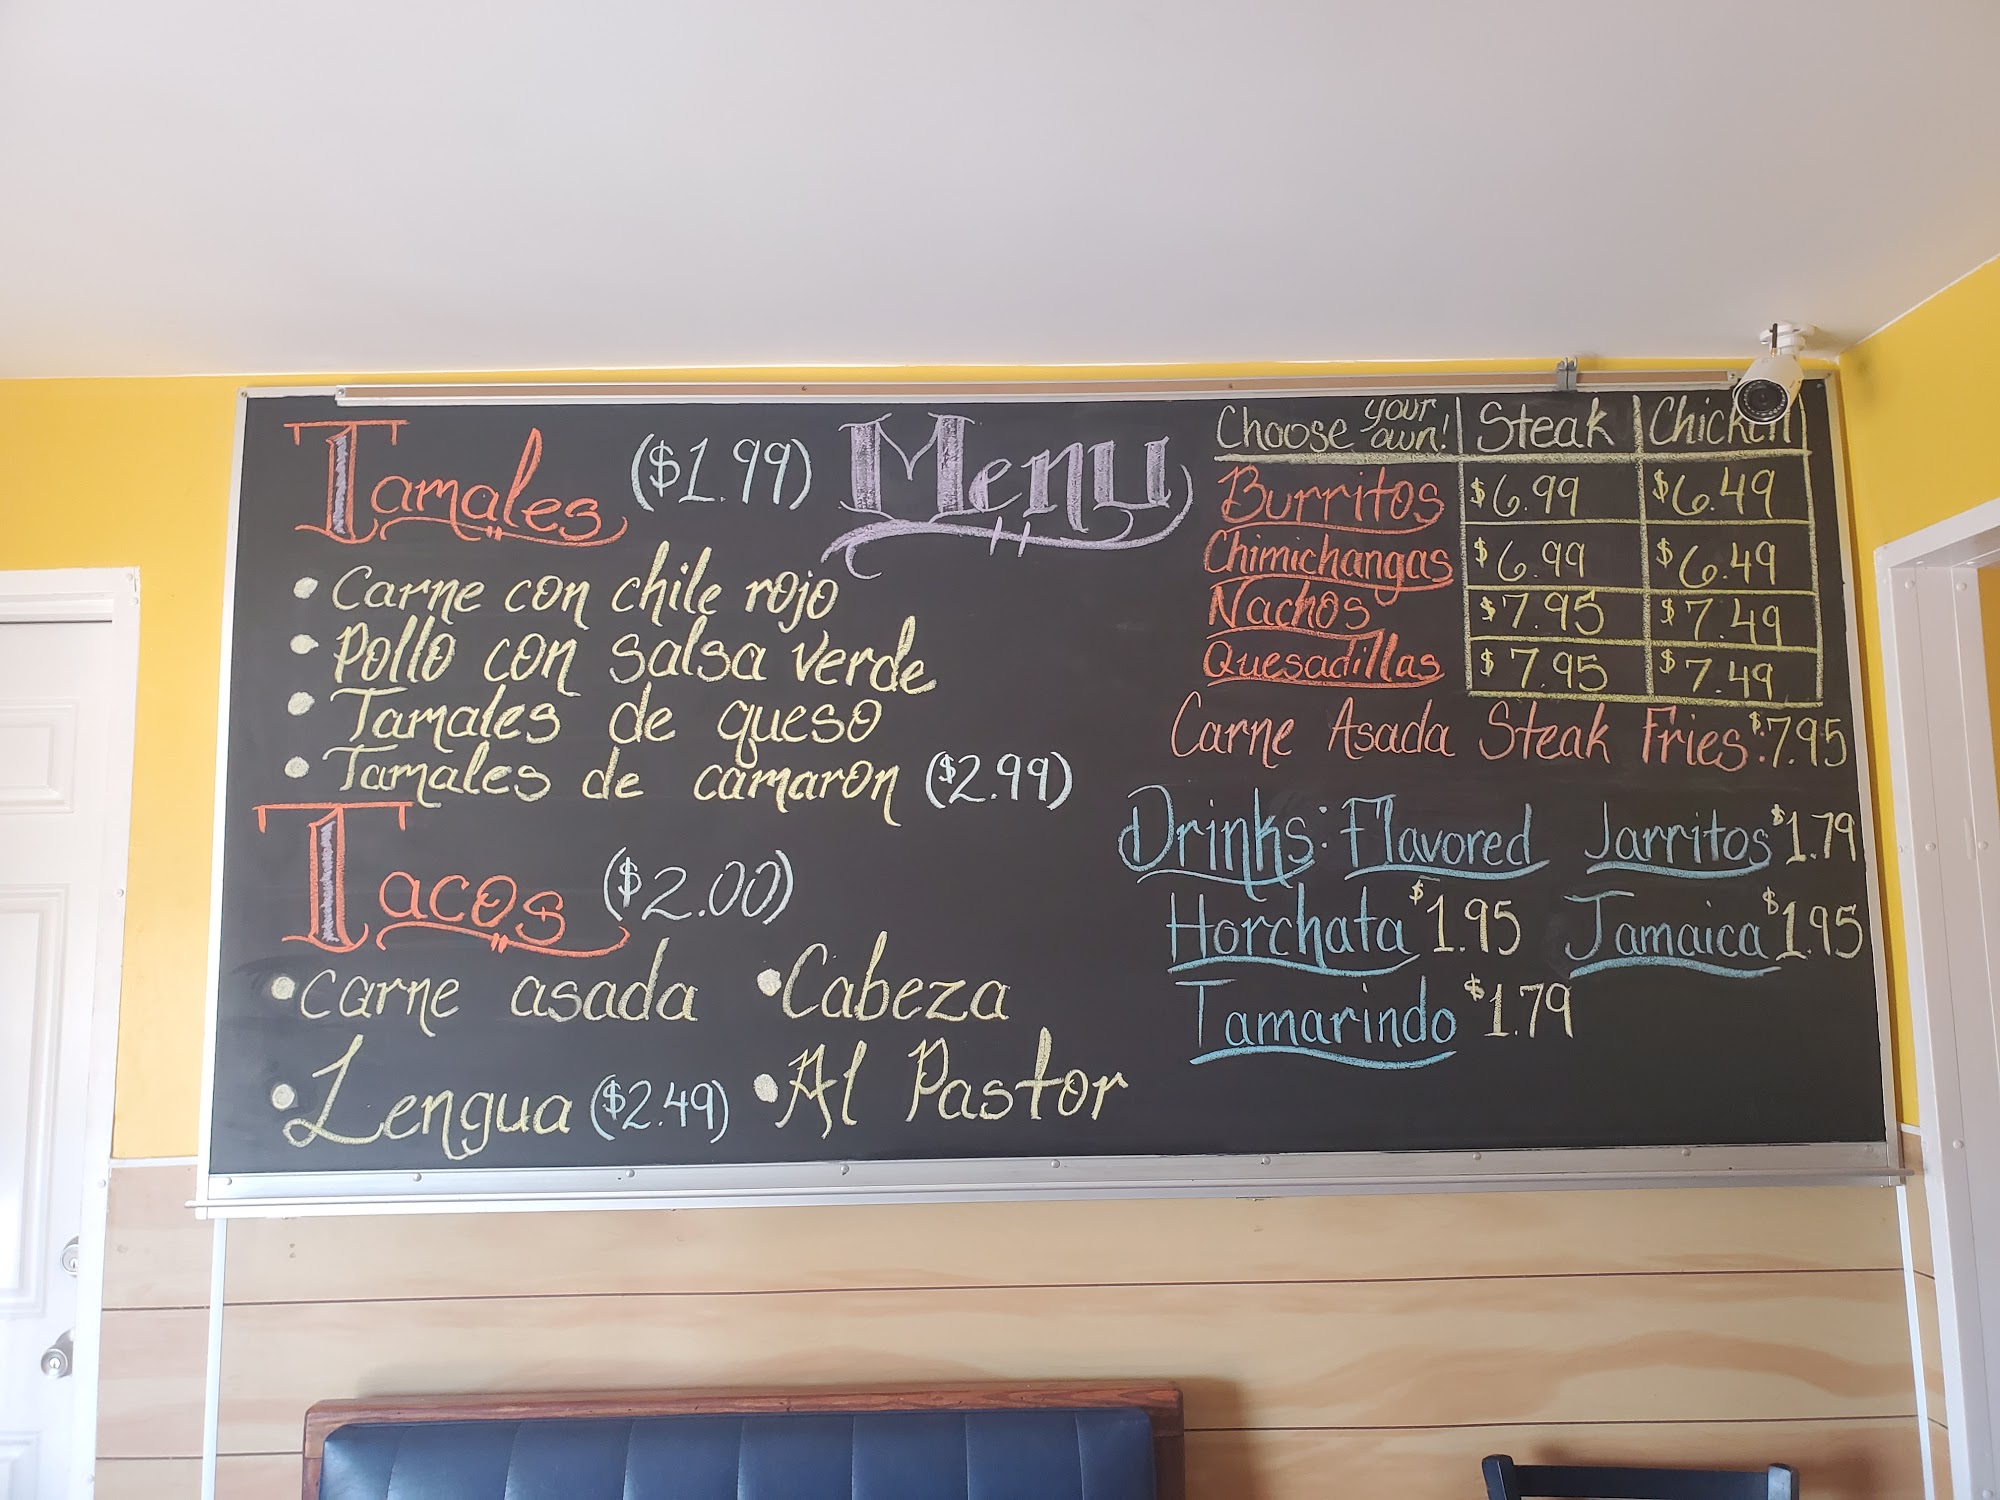 Menu
Tamales ($1.99)
• Carne con chile rojo
• Pollo con salsa verde
• Tamales de queso
• Tamales de camaron ($2.99)
Tacos ($2.00)
• Carne asada • Cabeza
• Lengua ($2.49) • Al Pastor
Choose your own! Steak Chicken
Burritos $6.99 $6.49
Chimichangas $6.99 $6.49
Nachos $7.95 $7.49
Quesadillas $7.95 $7.49
Carne Asada Steak Fries: $7.95
Drinks: Flavored Jarritos $1.79
Horchata $1.95 Jamaica $1.95
Tamarindo $1.79